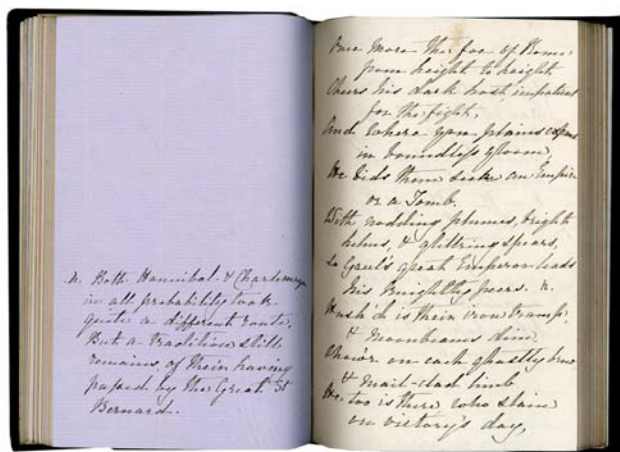 n. Both Hannibal & Charlemagne
in all probability took
quite a different route,
But a tradition still
remains, of their having
passed by the Great St
Bernard.
Once More the foe of Rome,
from height to height,
Cheers his dark host, impatient
for the fight,
And where yon plains expand
in boundless gloom,
He bids them seek an Empire
or a Tomb.
With nodding plumes, bright
helms, & glittring spears,
Lo Gaul's great Emperor leads
his Knightly peers. n.
Hush'd is their iron tramp,
& Moonbeams dim,
Show'r on each ghastly brow
& mail-clad limb
He, too is there who slain
on victory's day,